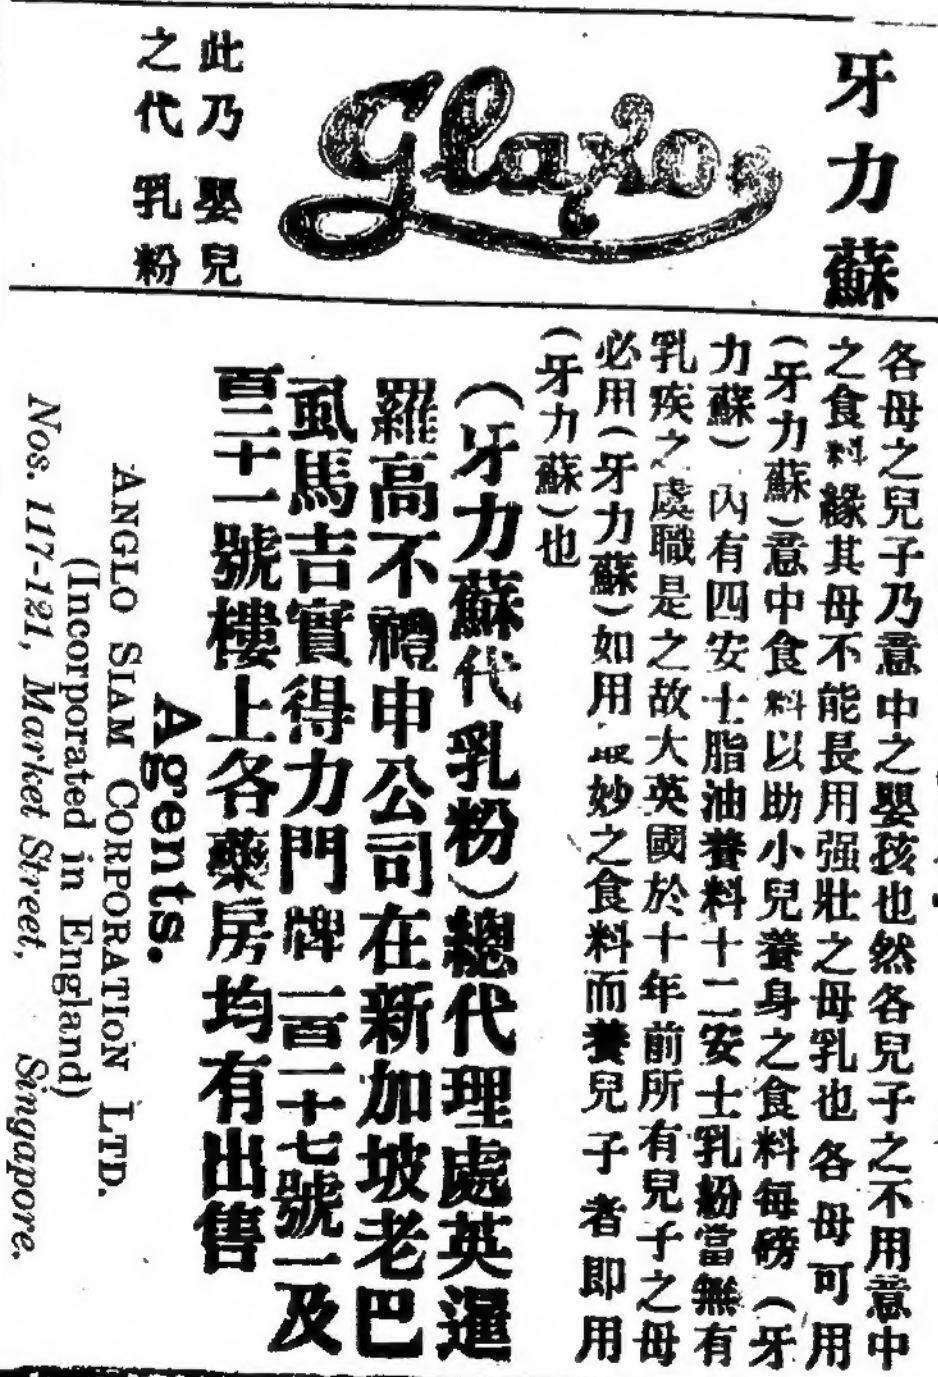 牙力蘇
Glaxo
此乃嬰兒
之代乳粉
各母之兒子乃意中之嬰孩也然各兒子之不用意中
之食料緣其母不能長用强壯之母乳也各母可用
(牙力蘇)意中食料以助小兒養身之食料每磅(牙
力蘇)內有四安士脂油養料十二安士乳粉當無有
乳疾之處職是之故大英國於十年前所有兒子之母
必用(牙力蘇)如用最妙之食料而養兒子者即用
(牙力蘇)也
(牙力蘇代乳粉)總代理處英暹
羅高不禮申公司在新加坡老巴
虱馬吉實得力門牌一百一十七號一及
百二十一號樓上各藥房均有出售
Agents.
ANGLO SIAM CORPORATION LTD.
(Incorporated in England)
Nos. 117-121, Market Street, Singapore.